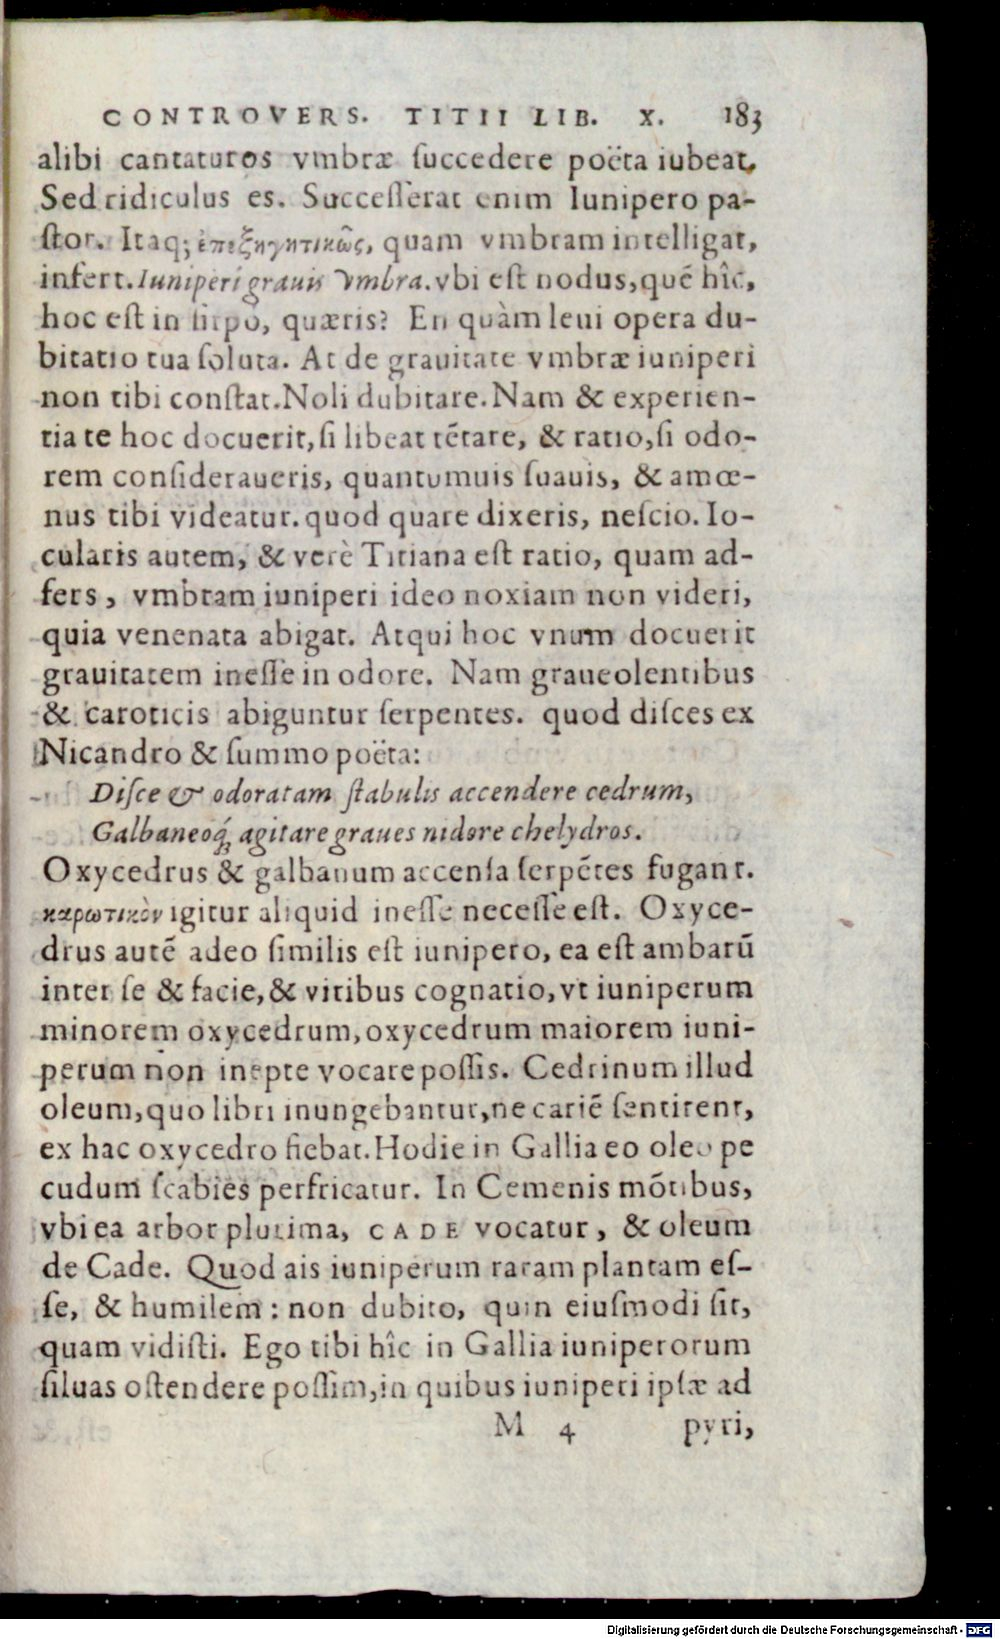 CONTROVERS. TITII LIB. X. 183
alibi cantaturos vmbræ ſuccedere poëta iubeat.
Sed ridiculus es. Succeſſerat enim Iunipero pa-
ſtor. Itaq; ἐπεξηγητικῶς, quam vmbram intelligat,
infert. Iuniperi grauis vmbra. vbi eſt nodus, quẽ hîc,
hoc eſt in ſirpo, quæris? En quàm leui opera du-
bitatio tua ſoluta. At de grauitate vmbræ iuniperi
non tibi conſtat. Noli dubitare. Nam & experien-
tia te hoc docuerit, ſi libeat tẽtare, & ratio, ſi odo-
rem conſideraueris, quantumuis ſuauis, & amœ-
nus tibi videatur. quod quare dixeris, neſcio. Io-
cularis autem, & verè Titiana eſt ratio, quam ad-
fers, vmbram iuniperi ideo noxiam non videri,
quia venenata abigat. Atqui hoc vnum docuerit
grauitatem ineſſe in odore. Nam graueolentibus
& caroticis abiguntur ſerpentes. quod diſces ex
Nicandro & ſummo poëta:
Diſce & odoratam ſtabulis accendere cedrum,
Galbaneoq́; agitare graues nidore chelydros.
Oxycedrus & galbanum accenſa ſerpẽtes fugant.
καρωτικὸν igitur aliquid ineſſe neceſſe eſt. Oxyce-
drus autẽ adeo ſimilis eſt iunipero, ea eſt ambarũ
inter ſe & facie, & viribus cognatio, vt iuniperum
minorem oxycedrum, oxycedrum maiorem iuni-
perum non inepte vocare poſſis. Cedrinum illud
oleum, quo libri inungebantur, ne cariẽ ſentirent,
ex hac oxycedro fiebat. Hodie in Gallia eo oleo pe
cudum ſcabies perfricatur. In Cemenis mõtibus,
vbi ea arbor plurima, CADE vocatur, & oleum
de Cade. Quod ais iuniperum raram plantam eſ-
ſe, & humilem: non dubito, quin eiuſmodi ſit,
quam vidiſti. Ego tibi hîc in Gallia iuniperorum
ſiluas oſtendere poſſim, in quibus iuniperi ipſæ ad
M 4 pyri,
Digitalisierung gefördert durch die Deutsche Forschungsgemeinschaft - DFG